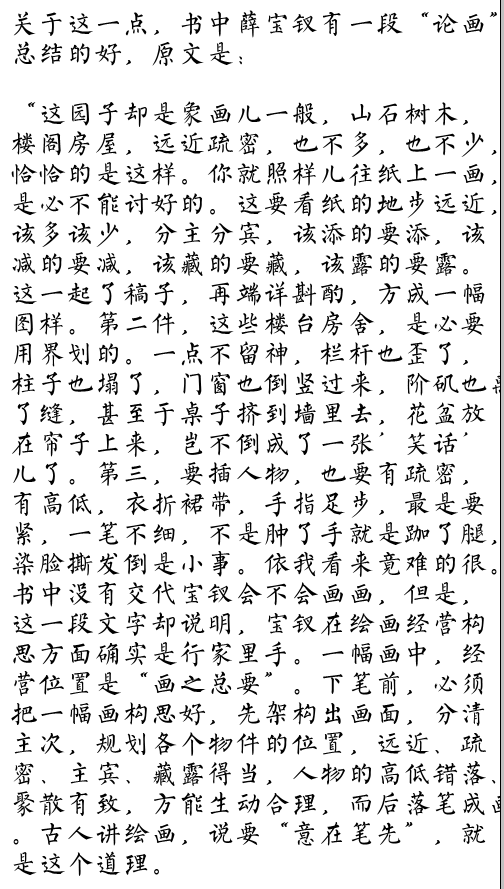 关于这一点，书中薛宝钗有一段“论画”
总结的好，原文是：
“这园子却是象画儿一般，山石树木，
楼阁房屋，远近疏密，也不多，也不少，
恰恰的是这样。你就照样儿往纸上一画，
是必不能讨好的。这要看纸的地步远近，
该多该少，分主分宾，该添的要添，该
减的要减，该藏的要藏，该露的要露。
这一起了稿子，再端详斟酌，方成一幅
图样。第二件，这些楼台房舍，是必要
用界划的。一点不留神，栏杆也歪了，
柱子也塌了，门窗也倒竖过来，阶矶也离
了缝，甚至于桌子挤到墙里去，花盆放
在帘子上来，岂不倒成了一张‘笑话’
儿了。第三，要插人物，也要有疏密，
有高低，衣折裙带，手指足步，最是要
紧，一笔不细，不是肿了手就是跏了腿，
染脸撕发倒是小事。依我看来竟难的很。
书中没有交代宝钗会不会画画，但是，
这一段文字却说明，宝钗在绘画经营构
思方面确实是行家里手。一幅画中，经
营位置是“画之总要”。下笔前，必须
把一幅画构思好，先架构出画面，分清
主次，规划各个物件的位置，远近、疏
密、主宾、藏露得当，人物的高低错落、
聚散有致，方能生动合理，而后落笔成画
。古人讲绘画，说要“意在笔先”，就
是这个道理。